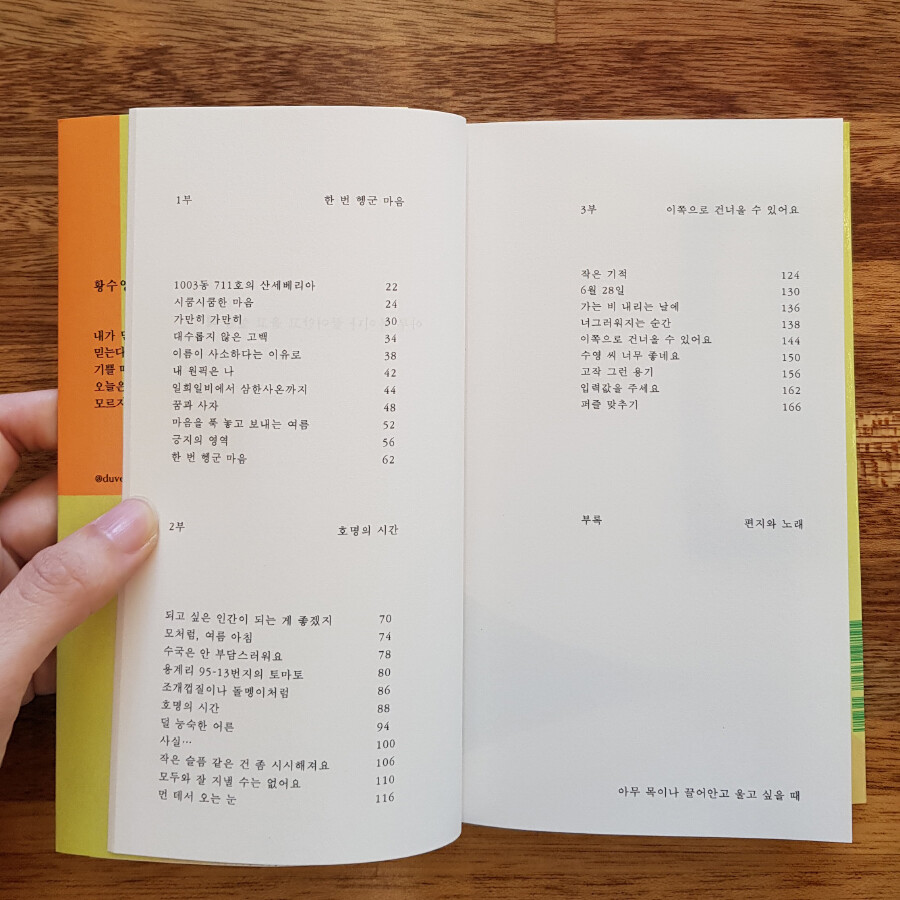 황수영
내가
믿는다
기쁠 때
오늘은
모르지
@duve
1부 한 번 헹군 마음
1003동 711호의 산세베리아 22
시쿰시쿰한 마음 24
가만히 가만히 30
대수롭지 않은 고백 34
이름이 사소하다는 이유로 38
내 원픽은 나 42
일희일비에서 삼한사온까지 44
꿈과 사자 48
마음을 푹 놓고 보내는 여름 52
긍지의 영역 56
한 번 헹군 마음 62
2부 호명의 시간
되고 싶은 인간이 되는 게 좋겠지 70
모처럼, 여름 아침 74
수국은 안 부담스러워요 78
용계리 95-13번지의 토마토 80
조개껍질이나 돌멩이처럼 86
호명의 시간 88
덜 능숙한 어른 94
사실… 100
작은 슬픔 같은 건 좀 시시해져요 106
모두와 잘 지낼 수는 없어요 110
먼 데서 오는 눈 116
3부 이쪽으로 건너올 수 있어요
작은 기적 124
6월 28일 130
가는 비 내리는 날에 136
너그러워지는 순간 138
이쪽으로 건너올 수 있어요 144
수영 씨 너무 좋네요 150
고작 그런 용기 156
입력값을 주세요 162
퍼즐 맞추기 166
부록 편지와 노래
아무 목이나 끌어안고 울고 싶을 때